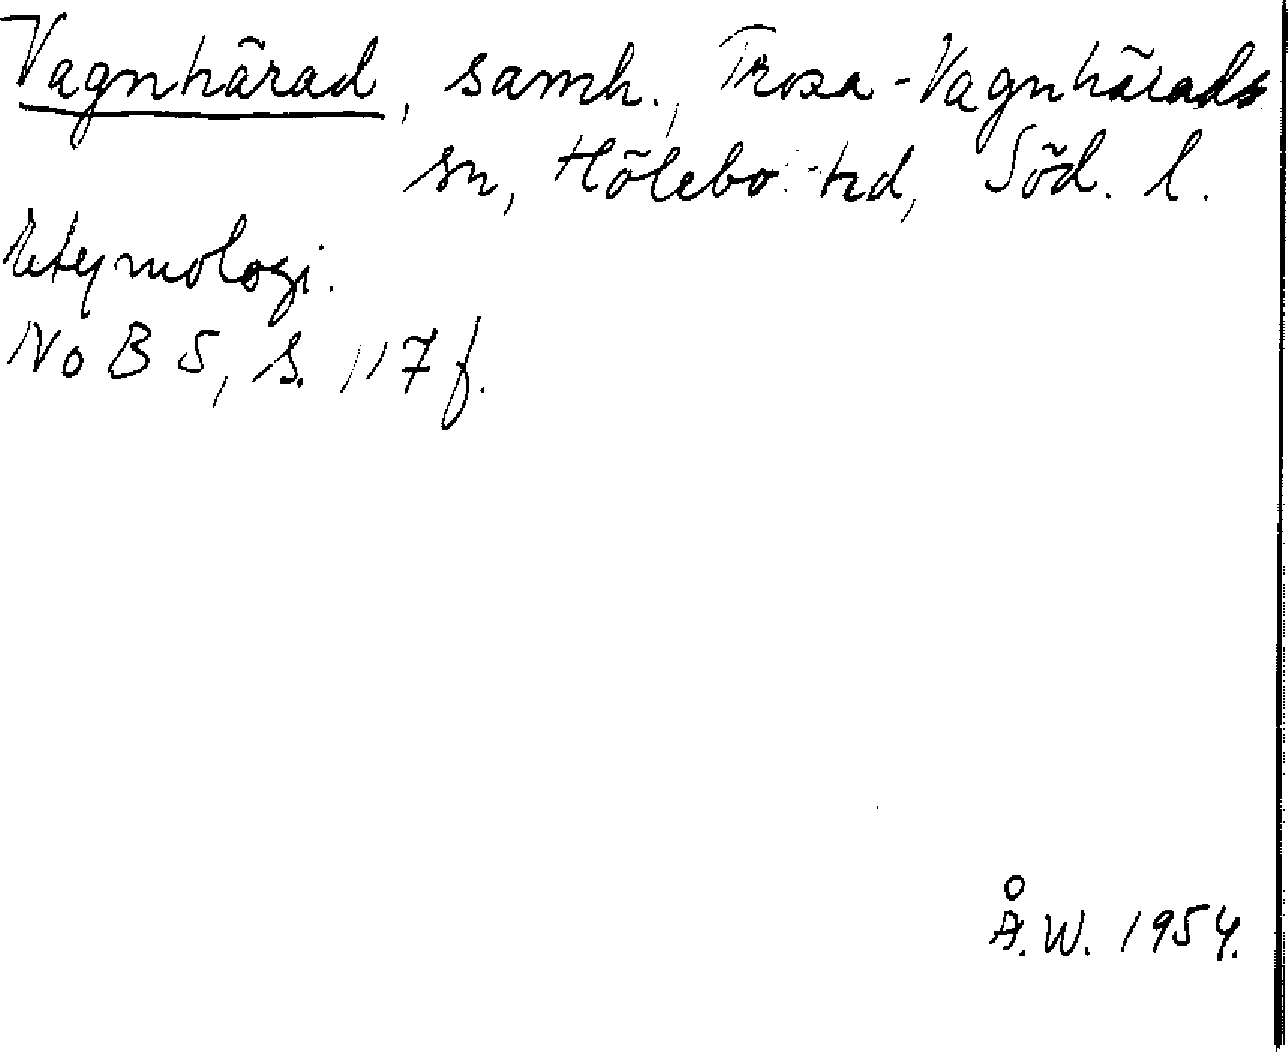 Vagnhärad, samh., Trosa-Vagnhärads
sn, Hölebo hd, Söd. l.
Etymologi.
NoB 5, s. 117 f.
Å.W. 1954.